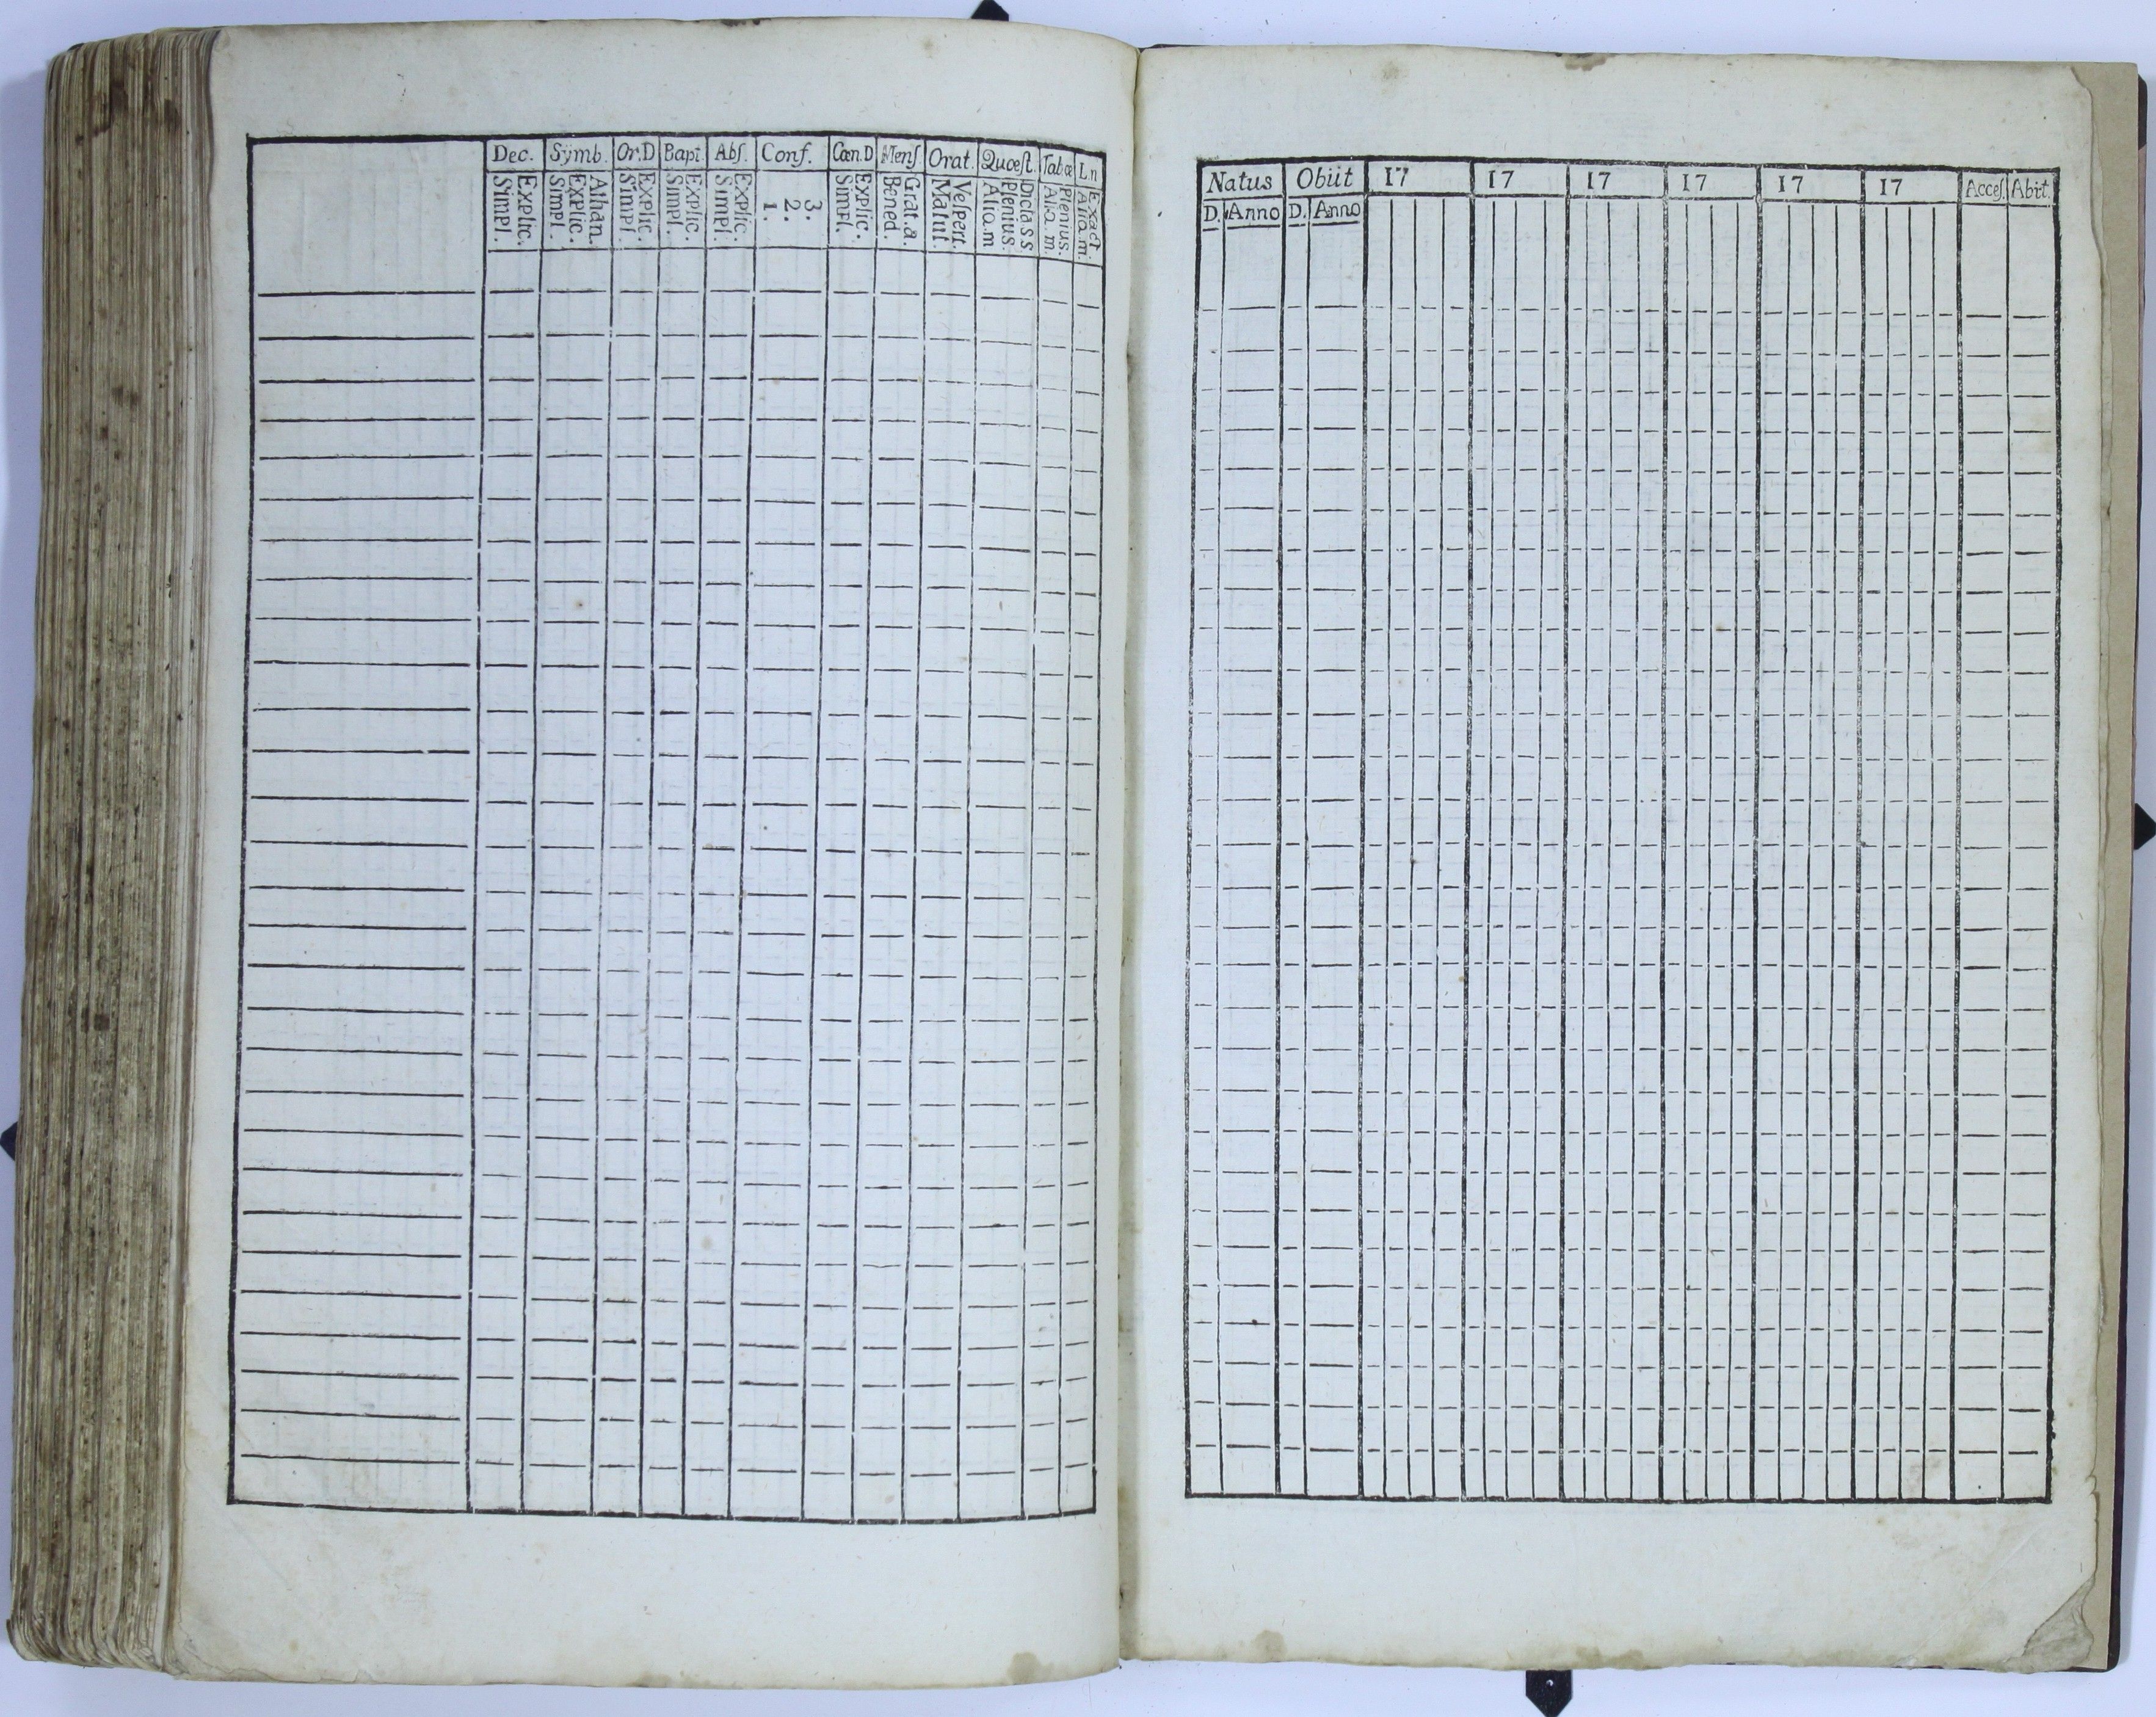 Dec. Sÿmb. Or.D Bapt. Abſ. Conf. Cœn.D Menſ. Orat. Quœſt. Tabœ L.n
Explic. Simpl. Athan. Explic. Simpl. Explic. Simpl. Explic. Simpl. Explic. Simpl. 3. 2. 1. Explic. Simpl. Grat.a. Bened. Veſpert. Matut. D.class Plenius. Aliq.m Plenius. Aliq.m. Exact. Aliq.m.
Natus Obiit 17 17 17 17 17 17 Acceſ. Abiit.
D. Anno D. Anno